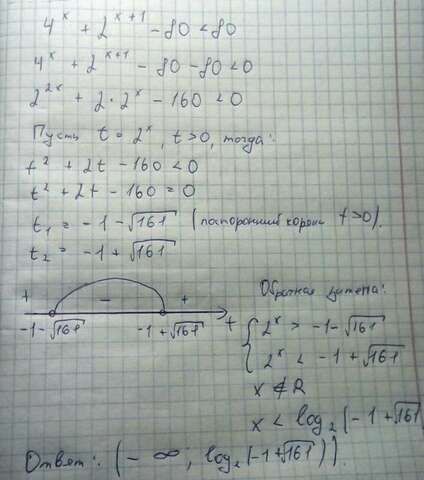 4^x + 2^(x+1) - 80 < 80
4^x + 2^(x+1) - 80 - 80 < 0
2^(2x) + 2 · 2^x - 160 < 0
Пусть t = 2^x, t > 0, тогда:
t^2 + 2t - 160 < 0
t^2 + 2t - 160 = 0
t₁ = -1 - √161 (посторонний корень t > 0).
t₂ = -1 + √161
+ - + t
-1-√161 -1+√161
Обратная замена:
{ 2^x > -1-√161
2^x < -1+√161
x ∉ R
x < log₂(-1+√161
Ответ: (-∞; log₂(-1+√161)).